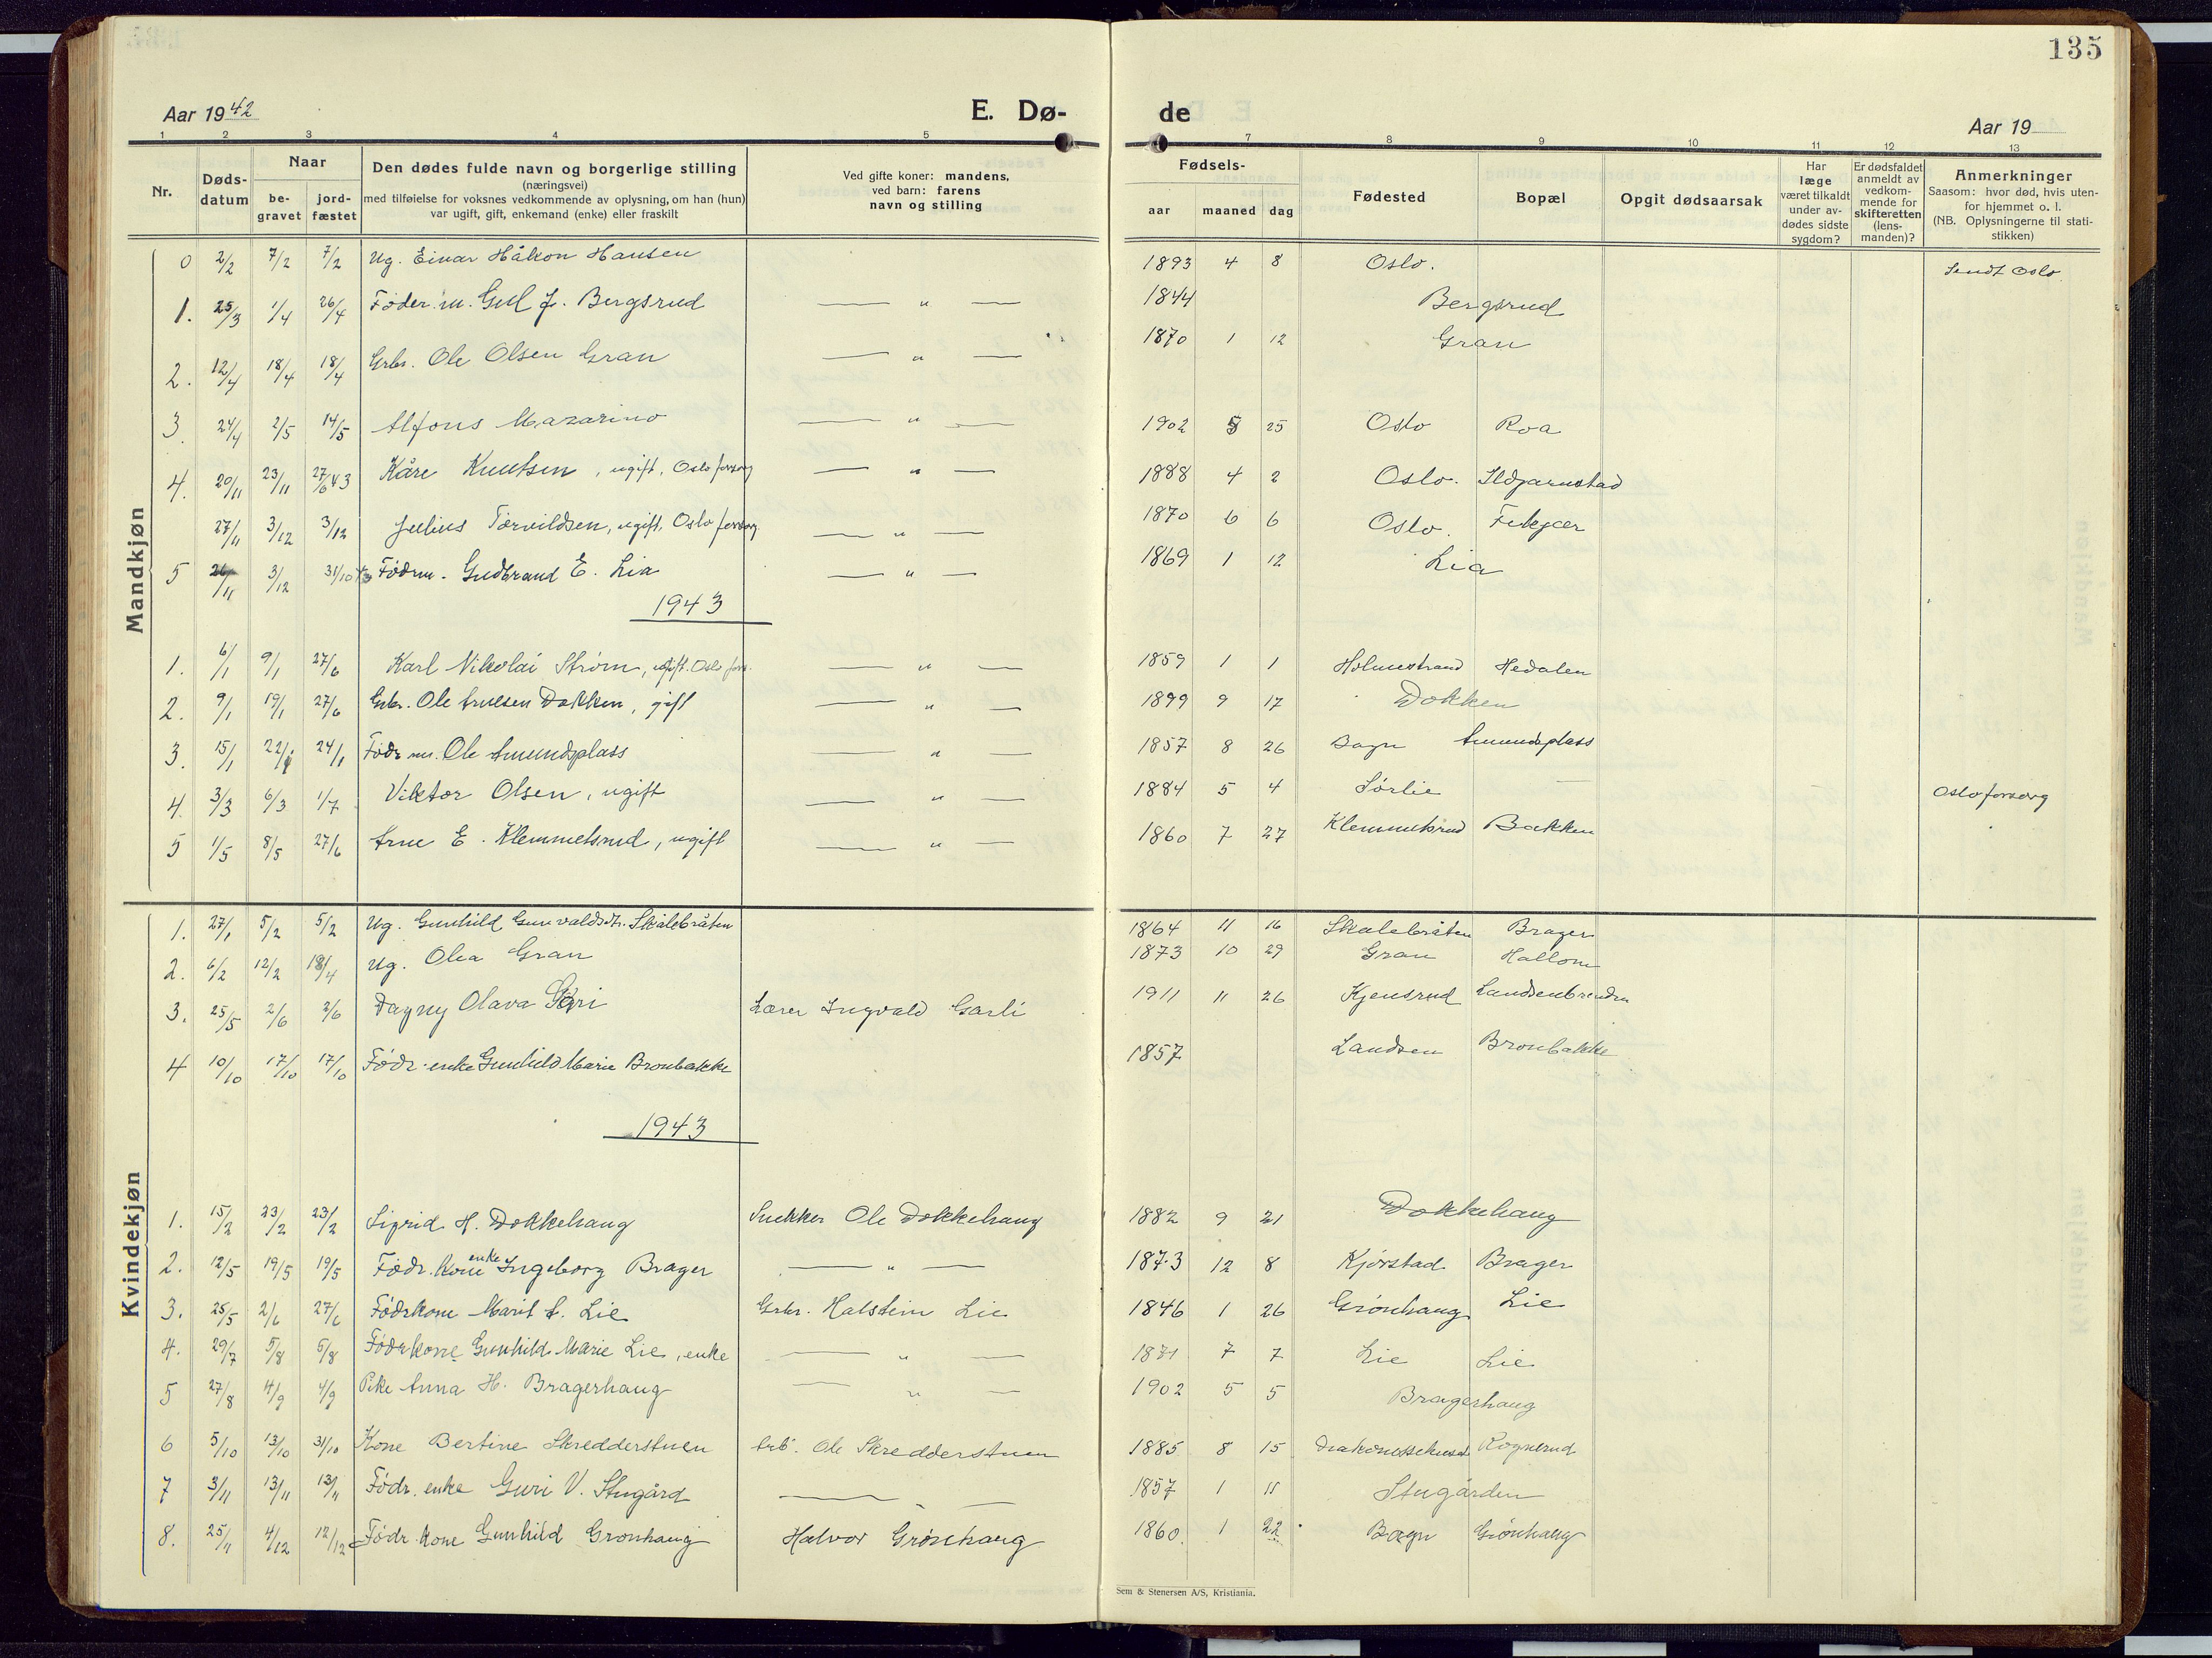 135
Aar 1942 E. Dø- de Aar 19
1 2 3 4 5 7 8 9 10 11 12 13
Nr. Døds-datum Naar be-gravet jord-fæstet Den dødes fulde navn og borgerlige stilling (næringsvei) med tilføielse for voksnes vedkommende av oplysning, om han (hun) var ugift, gift, enkemand (enke) eller fraskilt Ved gifte koner: mandens, ved barn: farens navn og stilling Fødsels- aar maaned dag Fødested Bopæl Opgit dødsaarsak Har læge været tilkaldt under av-dødes sidste sygdom? Er dødsfaldet anmeldt av vedkom-mende for skifteretten (lens-manden)? Anmerkninger Saasom: hvor død, hvis uten-for hjemmet o. l. (NB. Oplysningerne til stati-stikken)
Mandkjøn
0 2/2 7/2 7/2 Ug. Einar Håkon Hansen 1893 4 8 Oslo. Sendt Oslo
1. 25/3 1/4 26/4 Føder.m. Gul J. Bergsrud — " — 1844 Bergsrud
2. 12/4 18/4 18/4 Grbr. Ole Olsen Gran — " — 1870 1 12 Gran
3 24/4 2/5 14/5 Alfons Mazarino — " — 1902 5 25 Oslo Roa
4. 20/11 23/11 27/6 43 Kåre Knutsen, ugift, Oslo forsorg — " — 1888 4 2 Oslo. Ildjarnstad
27/11 3/12 3/12 Julius Torvildsen, ugift, Oslo forsorg — " — 1870 6 6 Oslo. Fekjær
5 26/11 3/12 31/10 43 Fødrm. Gudbrand E. Lia — " — 1869 1 12 Lia
1943
1. 6/1 9/1 27/6 Karl Nikolai Strøm, ugift. Oslo fors. — " — 1859 1 1 Holmestrand Hedalen
2. 9/1 19/1 27/6 Grbr. Ole Arnesen Dokken, gift — " — 1899 9 17 Dokken
3. 15/1 22/1 24/1 Fødr m. Ole Amundsplass — " — 1857 8 26 Bagn Amundsplass
4. 3/3 6/3 1/7 Viktor Olsen, ugift — " — 1884 5 4 Sørlie — Oslo forsorg
5 1/5 8/5 27/6 Arne E. Klemmetsrud, ugift — " — 1860 7 27 Klemmetsrud Bakken
Kvindekjøn
1. 27/1 5/2 5/2 Ug. Gunhild Gunvaldsdtr. Skålebråten 1864 11 16 Skålebråten Brager
2. 6/2 12/2 18/4 Ug. Olea Gran 1873 10 29 Gran Hallom
3. 25/5 2/6 2/6 Dagny Olava Lærer Ingvald Garli 1911 11 26 Kjensrud Landsenbrenden
4 10/10 17/10 17/10 Fødr. enke Gunhild Marie Bronbakke 1857 Landsen Bronbakke
1943
1. 15/2 23/2 23/2 Sigrid H. Dokkehaug Snekker Ole Dokkehaug 1882 9 21 Dokkehaug
2. 12/5 19/5 19/5 Fødr. kone enke Ingeborg Brager — " — 1873 12 8 Kjørstad Brager
3. 25/5 2/6 27/6 Fødrkone Marit A. Lie Grbr. Halstein Lie 1846 1 26 Grønhaug Lie
4. 29/7 5/8 5/8 Fødrkone Gunhild Marie Lie, enke — " — 1871 7 7 Lie Lie
5 27/8 4/9 4/9 Pike Anna H. Bragerhaug — " — 1902 5 5 Bragerhaug
6 5/10 13/10 31/10 Kone Bertine Skredderstuen Arb. Ole Skredderstuen 1885 8 15 Diakonissehuset Rognerud
7 3/11 13/11 13/11 Fødr. enke Guri V. Stugård — " — 1857 1 11 Stugården
8. 25/11 4/12 12/12 Fødr. kone Gunhild Grønhaug Halvor Grønhaug 1860 1 22 Bagn Grønhaug
Sem & Stenersen A/S, Kristiania.